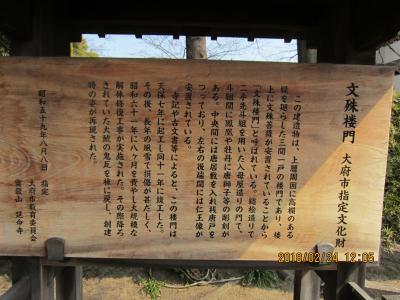 文殊楼門 大府市指定文化財
この建造物は、上層周囲に高欄のある
縁を廻らした三間一戸の楼門であり、楼
上に文殊菩薩が安置されていることから
「文殊楼門」と呼ばれている。総欅造りで
二手先斗組を用いた入母屋造りの門で、
斗組間に鳳凰や牡丹に唐獅子等の彫刻が
ある。中央間には唐居敷を入れ桟唐戸を
つっており、左右の後端間には仁王像が
安置されている。
寺記や古文書等によると、この楼門は
天保七年に起工し同十一年に竣工した。
その後、長年の風雪で損傷が甚だしく、
昭和六十一年に八ヶ月を費やし大規模な
解体修復工事が実施された。その際降ろ
されていた大鯱の鬼瓦を棟に戻し、創建
時の姿が再現された。
昭和五十九年八月八日 指定
大府市教育委員会
延命寺
2016/02/24 12:05